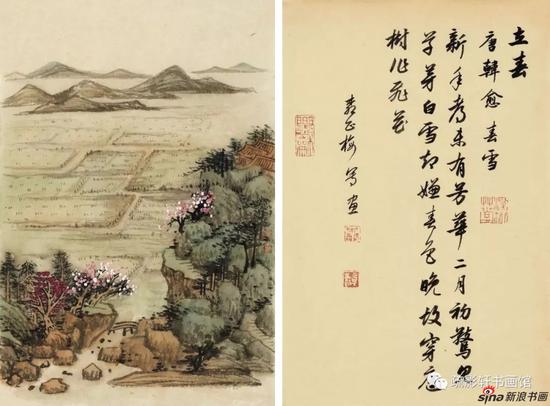 立春
唐韓愈 春雪
新年都未有芳華二月初驚見
草芽白雪却嫌春色晚故穿庭
樹作飛花
正梅寫畫
疏影轩书画馆
sina新浪书画